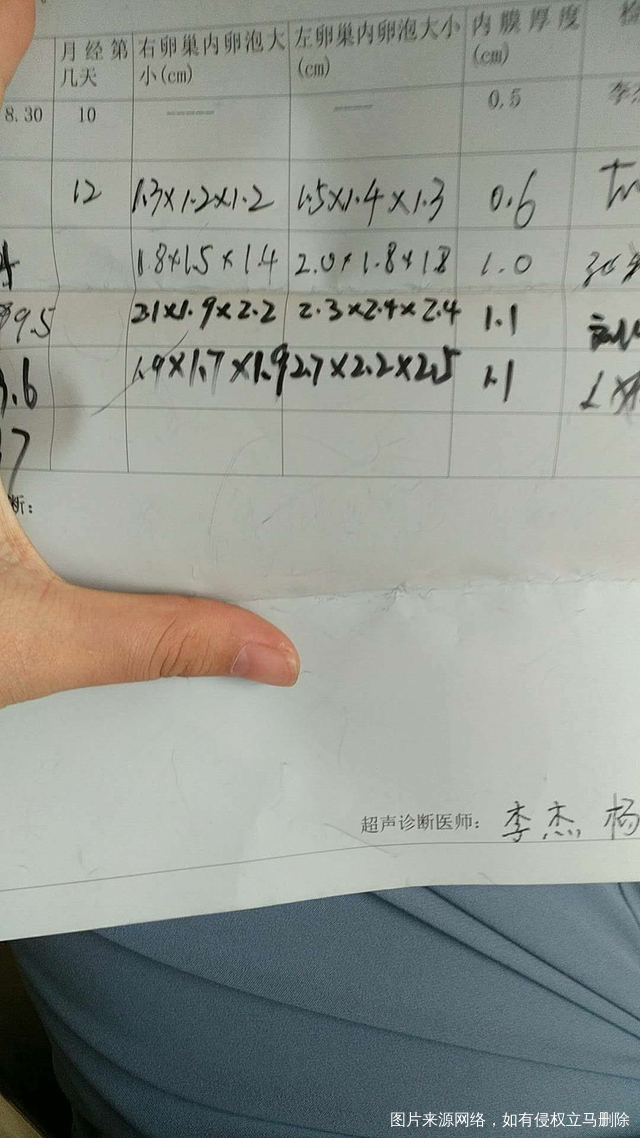 月经第几天 右卵巢内卵泡大小(cm) 左卵巢内卵泡大小(cm) 内膜厚度(cm)
8.30 10 —— —— 0.5
12 1.3×1.2×1.2 1.5×1.4×1.3 0.6
1.8×1.5×1.4 2.0×1.8×1.8 1.0
9.5 2.1×1.9×2.2 2.3×2.4×2.4 1.1
.6 1.9×1.7×1.9 2.7×2.2×2.5 1.1
7
断:
超声诊断医师: 李杰 杨
图片来源网络，如有侵权立马删除